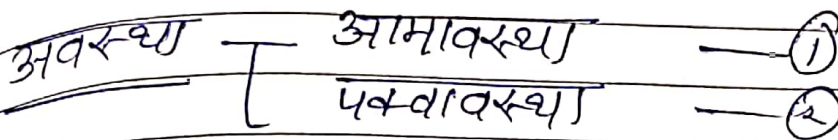 अवस्था आमावस्था — ①
पक्वावस्था — ②